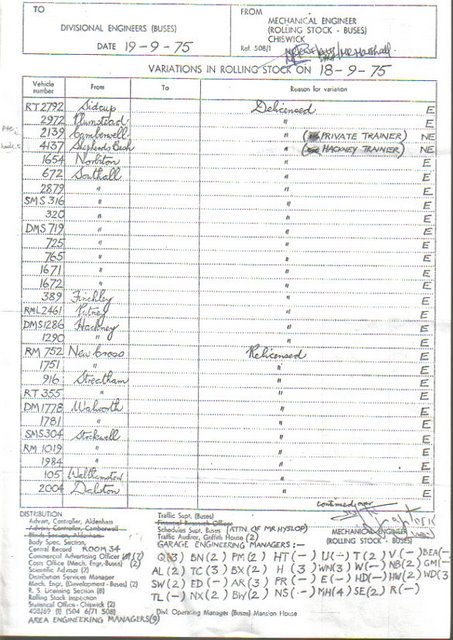 TO
DIVISIONAL ENGINEERS (BUSES)
DATE 19-9-75
FROM
MECHANICAL ENGINEER
(ROLLING STOCK - BUSES)
CHISWICK
Ref. 508/1
VARIATIONS IN ROLLING STOCK ON 18-9-75
Vehicle number From To Reason for variation
RT2792 Sidcup Delicensed E
2972 Plumstead " E
2139 Camberwell " (PRIVATE TRAINER) NE
4137 Shepherds Bush " (HACKNEY TRAINER) NE
1654 Norbiton " E
672 Southall " E
2879 " " E
SMS 316 " " E
320 " " E
DMS 719 " " E
725 " " E
765 " " E
1671 " " E
1672 " " E
389 Finchley " E
RML2461 Putney " E
DMS1286 Hackney " E
1290 " " E
RM 752 New Cross Relicensed E
1751 " " E
916 Streatham " E
RT 355 " " E
DM 1778 Walworth " E
1781 " " E
SMS304 Stockwell " E
RM 1019 " " E
1984 " " E
105 Walthamstow " E
2004 Dalston " E
continued over
MECHANICAL ENGINEER
(ROLLING STOCK - BUSES)
DISTRIBUTION
Advert. Controller, Aldenham
Body Spec. Section,
Central Record ROOM 34
Commercial Advertising Officer
Costs Office (Mech. Eng-Buses) (2)
Scientific Adviser (2)
Distribution Services Manager
Mech. Engr. (Development - Buses) (2)
R. S. Licensing Section (8)
Rolling Stock Inspection
Statistical Office - Chiswick (2)
408/69 (1) 504 6/71 508
AREA ENGINEERING MANAGERS(9)
Traffic Supt. (Buses)
Financial Research Officer
Schedules Supt, Buses (ATTN. OF MR HYSLOP)
Traffic Auditor, Griffith House (2)
GARAGE ENGINEERING MANAGERS :-
Q(3) BN(2) PM(2) HT(-) U(-) T(2) V(-) BEA(-)
AL(2) TC(3) BX(2) H(3) WN(3) W(-) NB(2) GM(-)
SW(2) ED(-) AR(3) PR(-) E(-) HD(-) HW(2) WD(3)
TL(-) NX(2) BW(2) NS(-) MH(4) SE(2) R(-)
Divl. Operating Managers (Buses) Mansion House